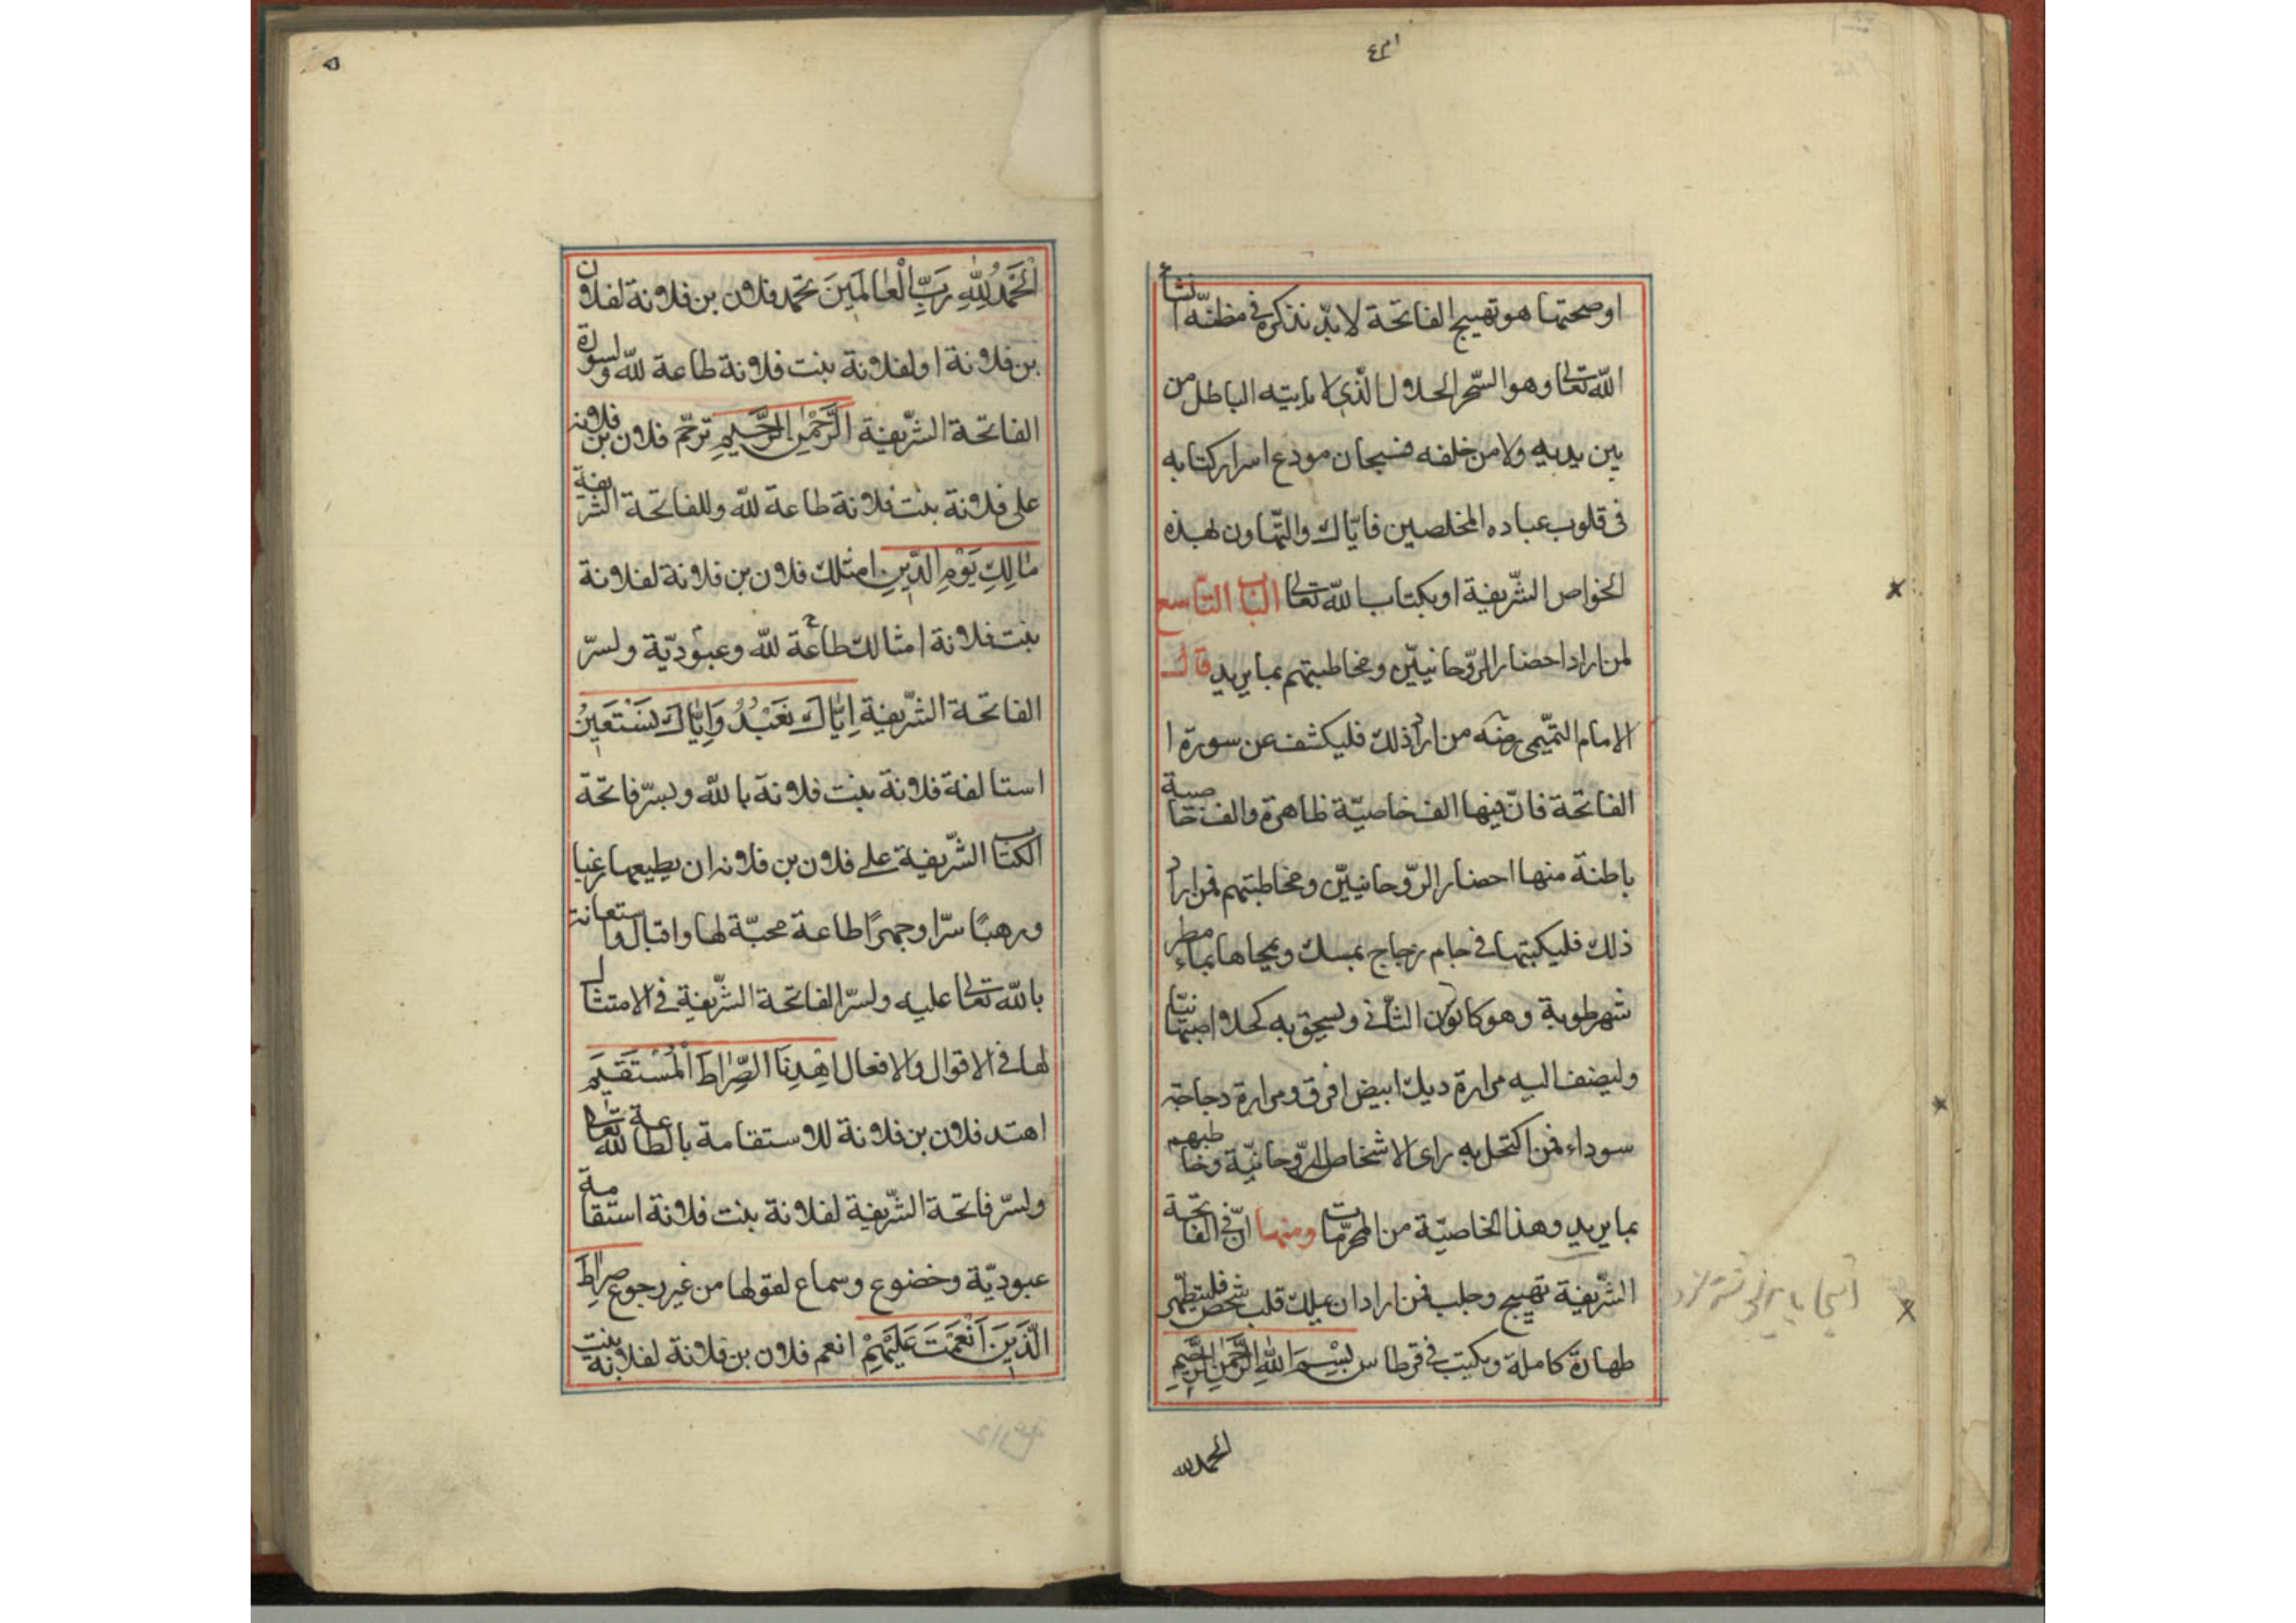 اوصحتها هو تهييج الفاتحة لا بدّ نذكره في مظنّه انشاء
اللّه تعالى وهو السّحر الحلال الّذي لا يأتيه الباطل من
بين يديه ولا من خلفه فسبحان مودع اسرار كتابه
في قلوب عباده المخلصين فايّاك والتّهاون بهذه
الخواص الشّريفة او بكتاب اللّه تعالى الباب التاسع
لمن اراد احضار الرّوحانييّن ومخاطبتهم بما يريد قال
الامام التّميمي رضه من اراد ذلك فليكشف عن سورة ا
الفاتحة فانّ فيها الف خاصيّة ظاهرة والف خاصية
باطنة منها احضار الرّوحانييّن ومخاطبتهم فمن اراد
ذلك فليكتبها في جام زجاج بمسك ويمحاها بماء مطر
شهر طوبة وهو كانون الثاني ويسحق به كحلا اصبهانيّا
وليضف اليه مرارة ديك ابيض افرق ومرارة دجاجة
سوداء فمن اكتحل به راى الاشخاص الرّوحانيّة وخاطبهم
بما يريد وهذا الخاصيّة من المحرّمات ومنها انّ في الفاتحة
الشّريفة تهييج وجلب فمن اراد ان يملك قلب شخص فليتطهّر
طهارة كاملة ويكتب في قرطاس بِسْمِ اللّهِ الرَّحْمٰنِ الرَّحِيمِ
الحمد لله
۵
اَلْحَمْدُ لِلّٰهِ رَبِّ الْعٰالَمِينَ تحمد فلان بن فلانة لفلان
بن فلانة او لفلانة بنت فلانة طاعة للّه ولسورة
الفاتحة الشّريفة الرَّحْمٰنِ الرَّحِيمِ ترحّم فلان بن فلانه
على فلانة بنت فلانة طاعة للّه وللفاتحة الشريفة
مٰالِكِ يَوْمِ الدِّينِ امتلك فلان بن فلانة لفلانة
بنت فلانة امتالك طاعة للّه وعبوديّة ولسرّ
الفاتحة الشّريفة اِيّٰاكَ نَعْبُدُ وَاِيّٰاكَ نَسْتَعِينُ
استالفة فلانة بنت فلانة باللّه وبسرّ فاتحة
الكتاب الشّريفة على فلان بن فلانه ان يطيعها رغبا
ورهبًا سرّا وجهرًا طاعة محبّة لها واقبال واستعانة
باللّه تعالى عليه ولسرّ الفاتحة الشّريفة في الامتثال
لها في الاقوال والافعال اِهْدِنَا الصِّرٰاطَ الْمُسْتَقِيمَ
اهتد فلان بن فلانة للاستقامة بالطاعة للّه تعالى
ولسرّ فاتحة الشّريفة لفلانة بنت فلانة استقامة
عبوديّة وخضوع وسماع لقولها من غير رجوع صِرٰاطَ
الَّذِينَ اَنْعَمْتَ عَلَيْهِمْ انعم فلان بن فلانة لفلانة بنت